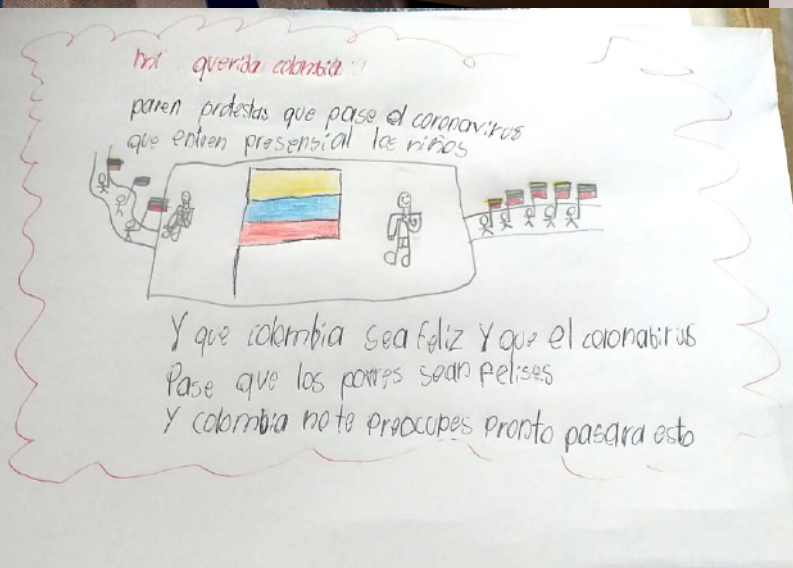 mi querida colombia
paren protestas que pase el coronavirus
que entren presensial los niños
Y que colombia sea feliz Y que el coronabirus
Pase que los povres sean felises
Y colombia no te preocupes pronto pasara esto